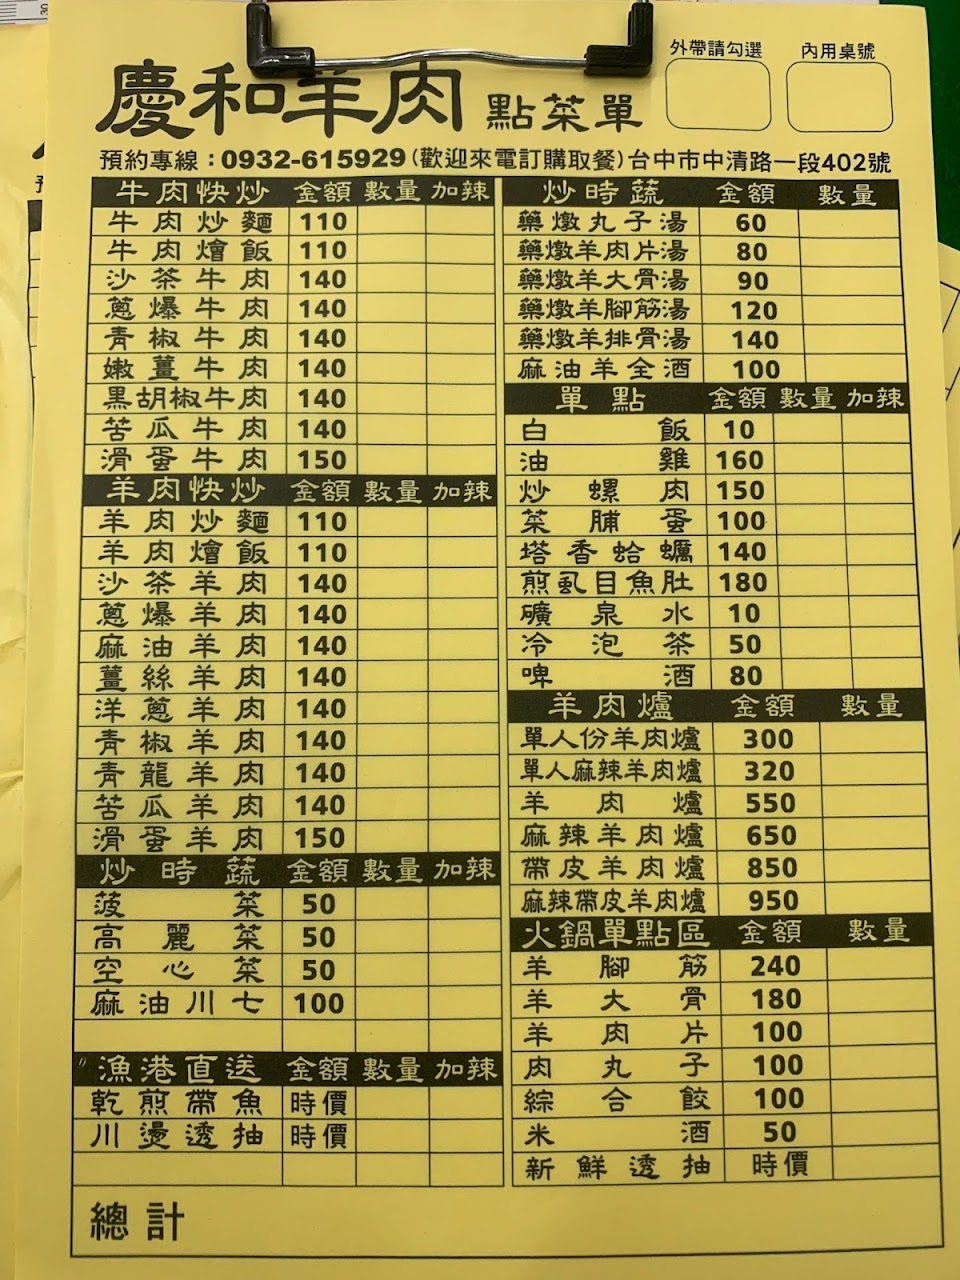 外帶請勾選 內用桌號
慶和羊肉 點菜單
預約專線：0932-615929(歡迎來電訂購取餐)台中市中清路一段402號
牛肉快炒 金額 數量 加辣
牛肉炒麵 110
牛肉燴飯 110
沙茶牛肉 140
蔥爆牛肉 140
青椒牛肉 140
嫩薑牛肉 140
黑胡椒牛肉 140
苦瓜牛肉 140
滑蛋牛肉 150
羊肉快炒 金額 數量 加辣
羊肉炒麵 110
羊肉燴飯 110
沙茶羊肉 140
蔥爆羊肉 140
麻油羊肉 140
薑絲羊肉 140
洋蔥羊肉 140
青椒羊肉 140
青龍羊肉 140
苦瓜羊肉 140
滑蛋羊肉 150
炒時蔬 金額 數量 加辣
菠菜 50
高麗菜 50
空心菜 50
麻油川七 100
漁港直送 金額 數量 加辣
乾煎帶魚 時價
川燙透抽 時價
炒時蔬 金額 數量
藥燉丸子湯 60
藥燉羊肉片湯 80
藥燉羊大骨湯 90
藥燉羊腳筋湯 120
藥燉羊排骨湯 140
麻油羊全酒 100
單點 金額 數量 加辣
白飯 10
油雞 160
炒螺肉 150
菜脯蛋 100
塔香蛤蠣 140
煎虱目魚肚 180
礦泉水 10
冷泡茶 50
啤酒 80
羊肉爐 金額 數量
單人份羊肉爐 300
單人麻辣羊肉爐 320
羊肉爐 550
麻辣羊肉爐 650
帶皮羊肉爐 850
麻辣帶皮羊肉爐 950
火鍋單點區 金額 數量
羊腳筋 240
羊大骨 180
羊肉片 100
肉丸子 100
綜合餃 100
米酒 50
新鮮透抽 時價
總計